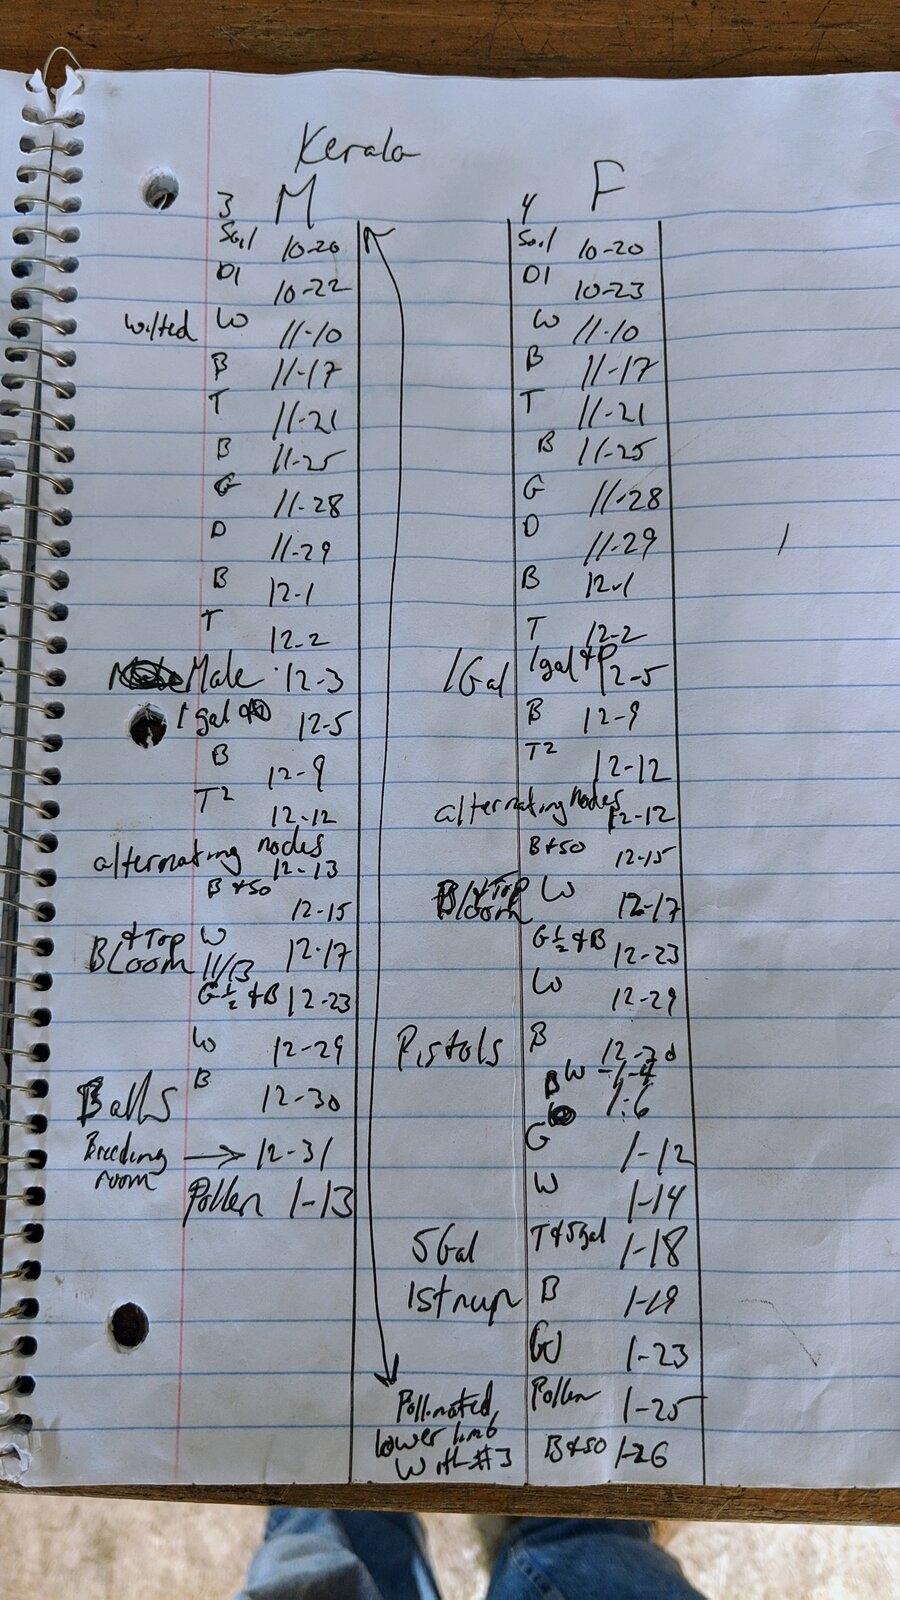 Kerala
3 M
4 F
Soil 10-20
D1 10-22
wilted W 11-10
B 11-17
T 11-21
B 11-25
G 11-28
D 11-29
B 12-1
T 12-2
Male 12-3
1 gal 12-5
B 12-9
T2 12-12
alternating nodes 12-13
B & SO 12-15
& Top Bloom W 12-17
11/13
G 1/2 & B 12-23
W 12-29
Balls B 12-30
Breeding room → 12-31
Pollen 1-13
Soil 10-20
D1 10-23
W 11-10
B 11-17
T 11-21
B 11-25
G 11-28
D 11-29
B 12-1
T 12-2
1Gal 1gal & P 12-5
B 12-9
T2 12-12
alternating nodes 12-12
B & SO 12-15
& Top Bloom W 12-17
G 1/2 & B 12-23
W 12-29
Pistols B 12-30
W
B 1-6
G 1-12
W 1-14
5Gal T & 5gal 1-18
1st nup B 1-19
1-23
Pollinated lower limb With #3 Pollen 1-25
B & SO 1-26